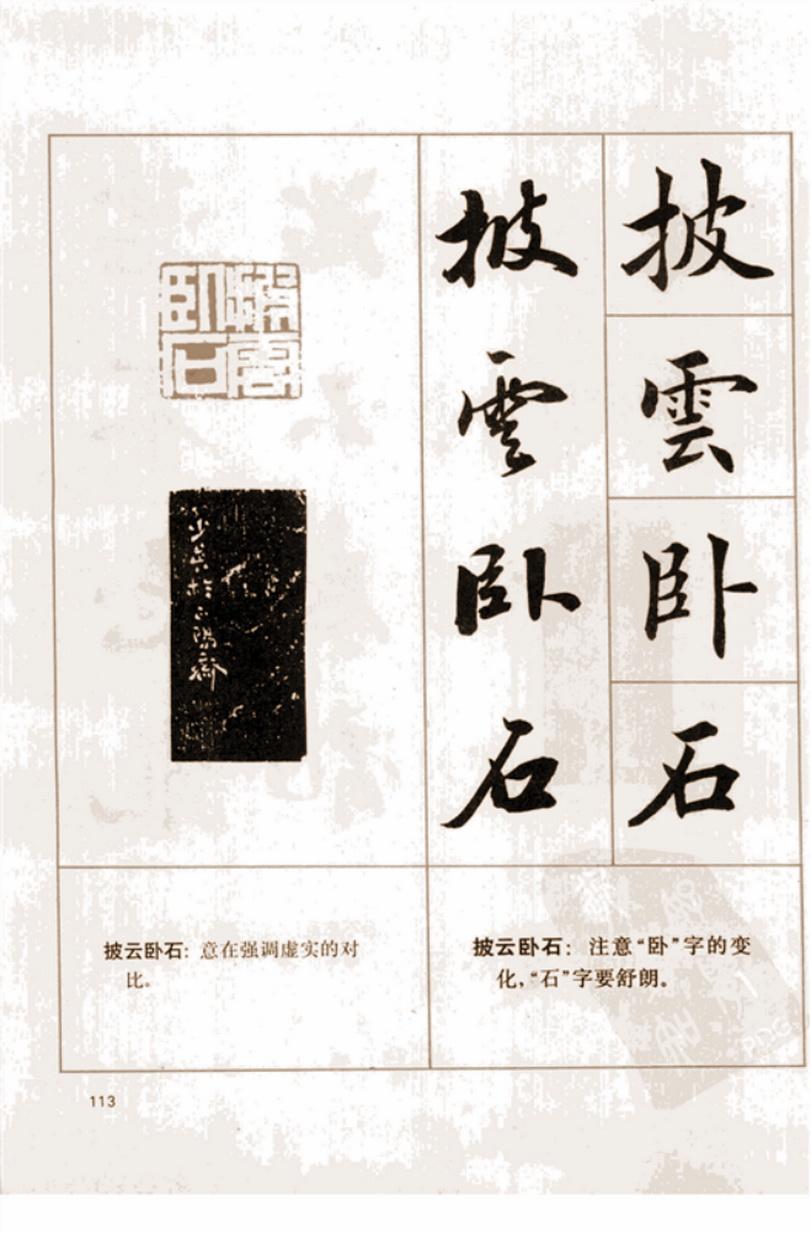 披
雲
卧
石
披
雲
卧
石
披雲
卧石
披云卧石：意在强调虚实的对
比。
披云卧石：注意“卧”字的变
化，“石”字要舒朗。
113